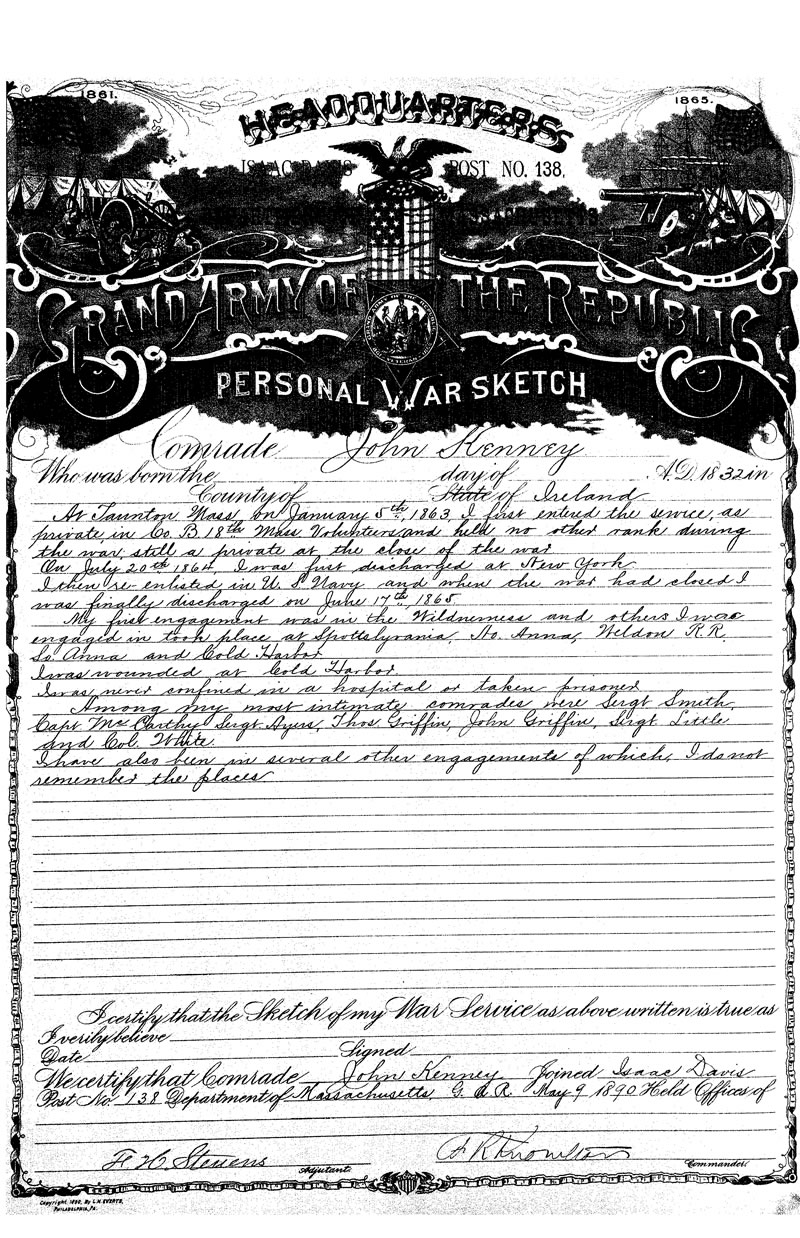 1861.
1865.
HEADQUARTERS
ISAAC DAVIS POST NO. 138,
MASSACHUSETTS
GRAND ARMY OF THE REPUBLIC
PERSONAL WAR SKETCH
Comrade John Kenney
Who was born the day of A.D. 1832 in
County of State of Ireland
At Taunton Mass on January 5th, 1863, I first entered the service, as
private in Co. B. 18th Mass Volunteers and held no other rank during
the war, still a private at the close of the war
On July 20th 1864 I was first discharged at New York
I then re-enlisted in U. S. Navy and when the war had closed I
was finally discharged on June 17th, 1865
My first engagement was in the Wilderness and others I was
engaged in took place at Spottslyvania, No. Anna, Weldon R.R.
So. Anna and Cold Harbor
I was wounded at Cold Harbor
I was never confined in a hospital or taken prisoner
Among my most intimate comrades were Sergt Smith,
Capt McCarthy Sergt. Ayers, Thos. Griffin, John Griffin, Sergt Little
and Col. White.
I have also been in several other engagements of which, I do not
remember the places
I certify that the Sketch of my War Service as above written is true as
I verily believe
Date Signed
We certify that Comrade John Kenney Joined Isaac Davis
Post No. 138 Department of Massachusetts G. A. R. May 9 1890 Held Offices of
F H Stevens Adjutant
F R Knowlton Commander.
Copyright 1890, By L.H. EVERTS,
PHILADELPHIA, PA.